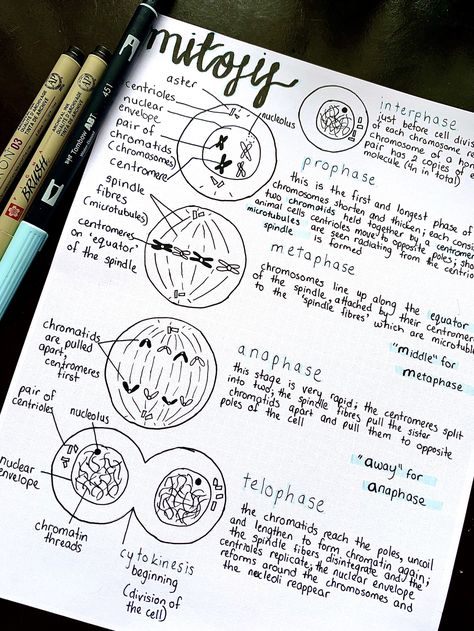 mitosis
aster
centrioles
nuclear
envelope
pair of
chromatids
(chromosomes)
centromere
nucleolus
interphase
just before cell divi
of each chromosome
chromosome of a ho
pair has 2 copies of
molecule (4n in total)
prophase
this is the first and longest phase of
chromosomes shorten and thicken; each cons
chromatids held together by a centromer
animal cells centrioles move to opposite poles; sho
microtubules are seen radiating from the centrio
spindle is formed
spindle
fibres
(microtubules)
centromeres
on 'equator'
of the spindle
metaphase
chromosomes line up along the equator
of the spindle, attached by their centromere
to the 'spindle fibres' which are microtubul
"middle" for
metaphase
chromatids
are pulled
apart;
centromeres
first
anaphase
this stage is very rapid; the centromeres split
into two; the spindle fibres pull the sister
chromatids apart and pull them to opposite
poles of the cell
"away" for
anaphase
pair of
centrioles
nucleolus
nuclear
envelope
chromatin
threads
cytokinesis
beginning
(division of
the cell)
telophase
the chromatids reach the poles, uncoil
and lengthen to form chromatin again;
the spindle fibers disintegrate and the
centrioles replicate; the nuclear envelope
reforms around the chromosomes and
the nucleoli reappear
Tombow ABT
451
BRUSH
03